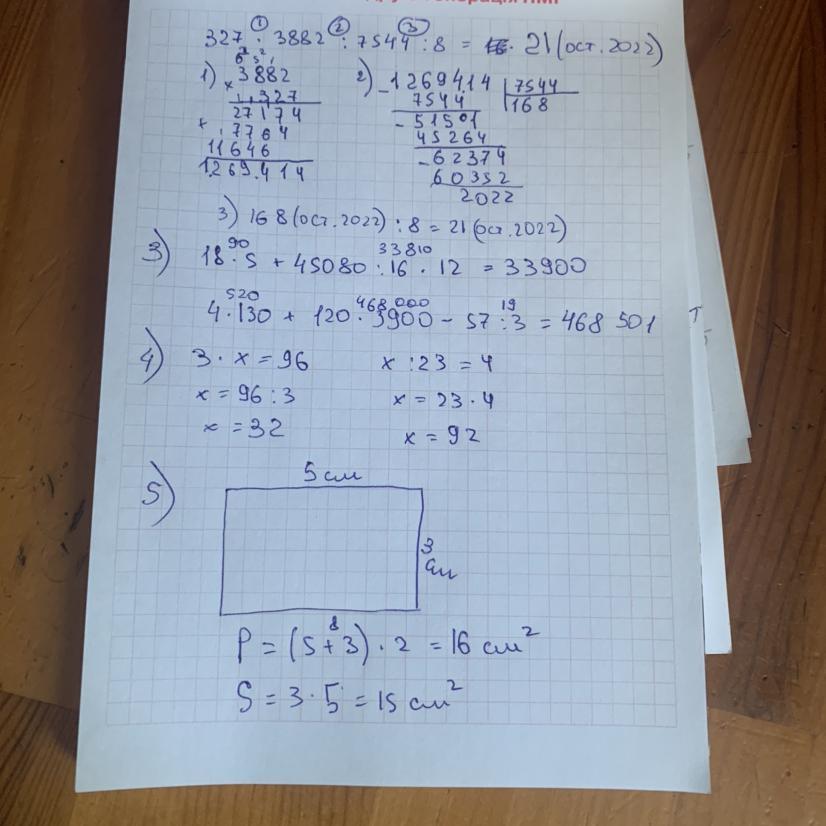 327 · 3882 : 7544 : 8 = 21 (ост. 2022)
1) 3882
× 327
27174
+ 7764
11646
1269414
2) 1269414 | 7544
7544 | 168
- 51501
45264
- 62374
60352
2022
3) 168 (ост. 2022) : 8 = 21 (ост. 2022)
90 33810
3) 18 · 5 + 45080 : 16 · 12 = 33900
520 468000 19
4 · 130 + 120 · 3900 - 57 : 3 = 468 501
4) 3 · x = 96 x : 23 = 4
x = 96 : 3 x = 23 · 4
x = 32 x = 92
5) 5 см
3 см
8
P = (5 + 3) · 2 = 16 см²
S = 3 · 5 = 15 см²